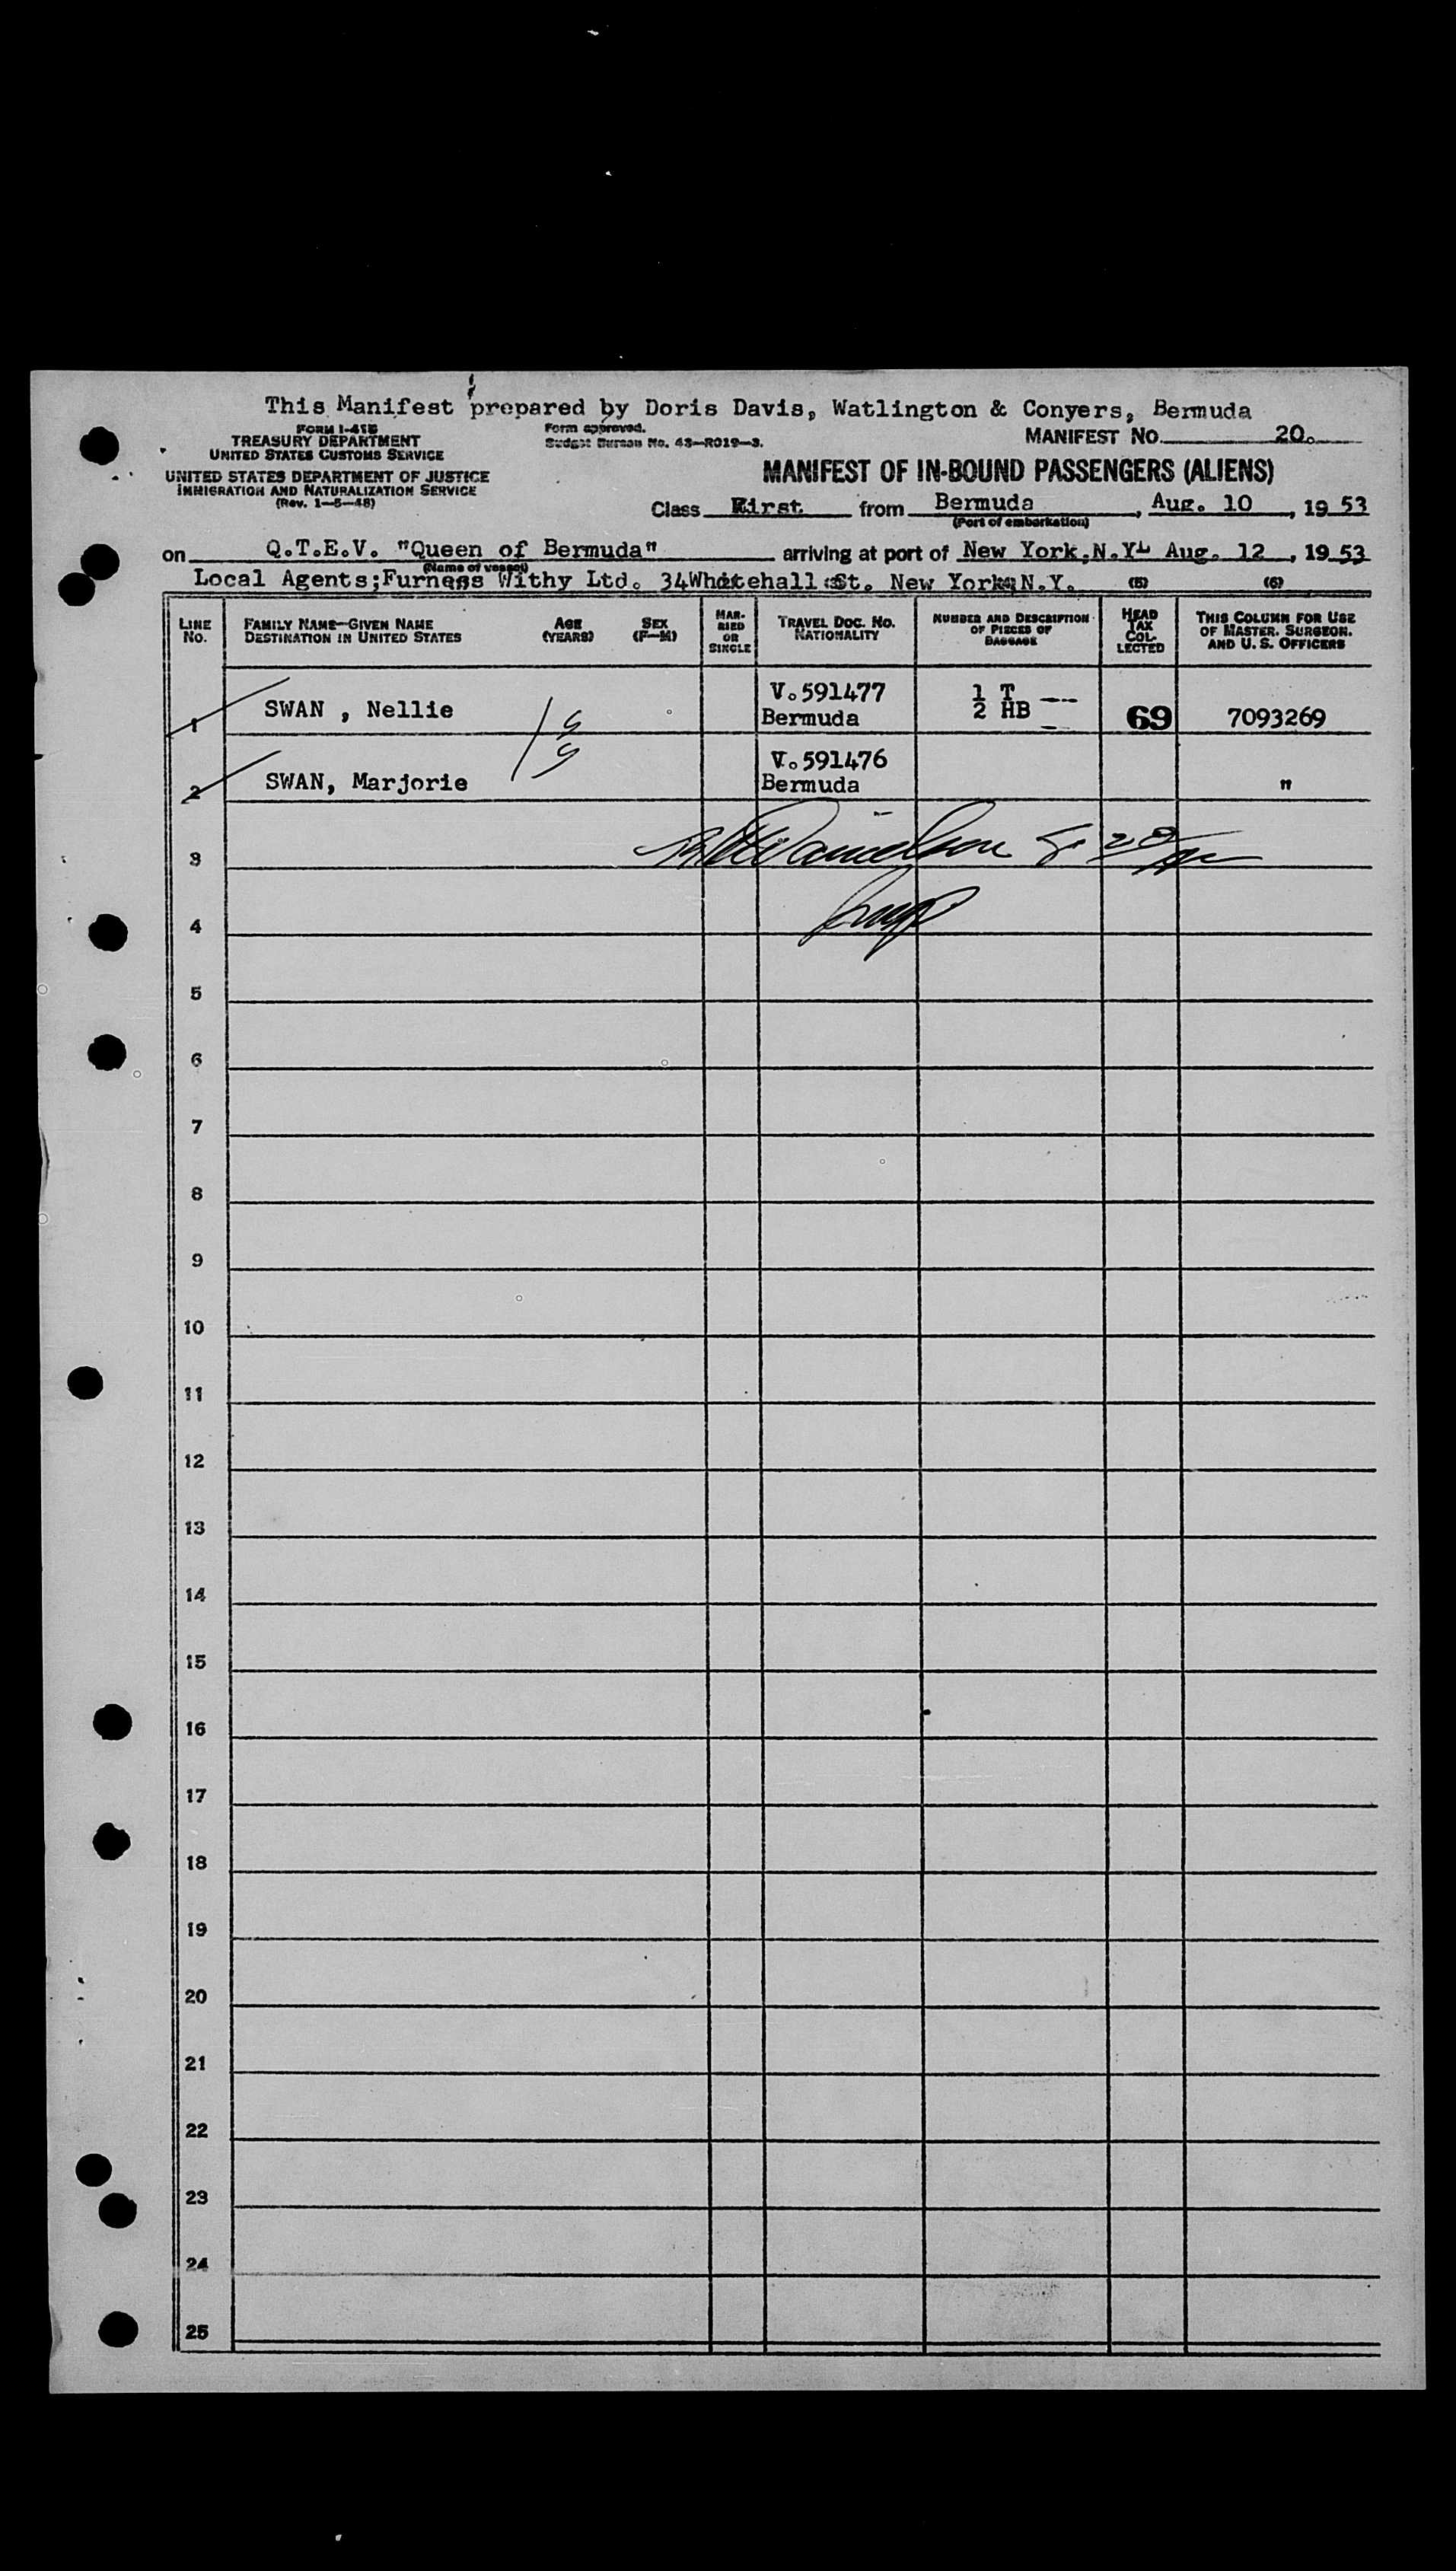 This Manifest prepared by Doris Davis, Watlington & Conyers, Bermuda
FORM I-418
TREASURY DEPARTMENT
UNITED STATES CUSTOMS SERVICE
UNITED STATES DEPARTMENT OF JUSTICE
IMMIGRATION AND NATURALIZATION SERVICE
(Rev. 1—5—48)
Form approved.
Budget Bureau No. 43—R019—3.
MANIFEST NO. 20.
MANIFEST OF IN-BOUND PASSENGERS (ALIENS)
Class First from Bermuda, Aug. 10, 19 53
(Port of embarkation)
on Q.T.E.V. "Queen of Bermuda" arriving at port of New York, N.Y. Aug. 12, 19 53
(Name of vessel)
Local Agents;Furness Withy Ltd. 34Whitehall St. New York N.Y. (5) (6)
LINE NO.
FAMILY NAME—GIVEN NAME
DESTINATION IN UNITED STATES
AGE (YEARS)
SEX (F—M)
MARRIED OR SINGLE
TRAVEL DOC. NO.
NATIONALITY
NUMBER AND DESCRIPTION
OF PIECES OF
BAGGAGE
HEAD TAX COLLECTED
THIS COLUMN FOR USE
OF MASTER, SURGEON,
AND U. S. OFFICERS
1 SWAN , Nellie V.591477 1 T 69 7093269
Bermuda 2 HB
2 SWAN, Marjorie V.591476 "
Bermuda
3
4
5
6
7
8
9
10
11
12
13
14
15
16
17
18
19
20
21
22
23
24
25